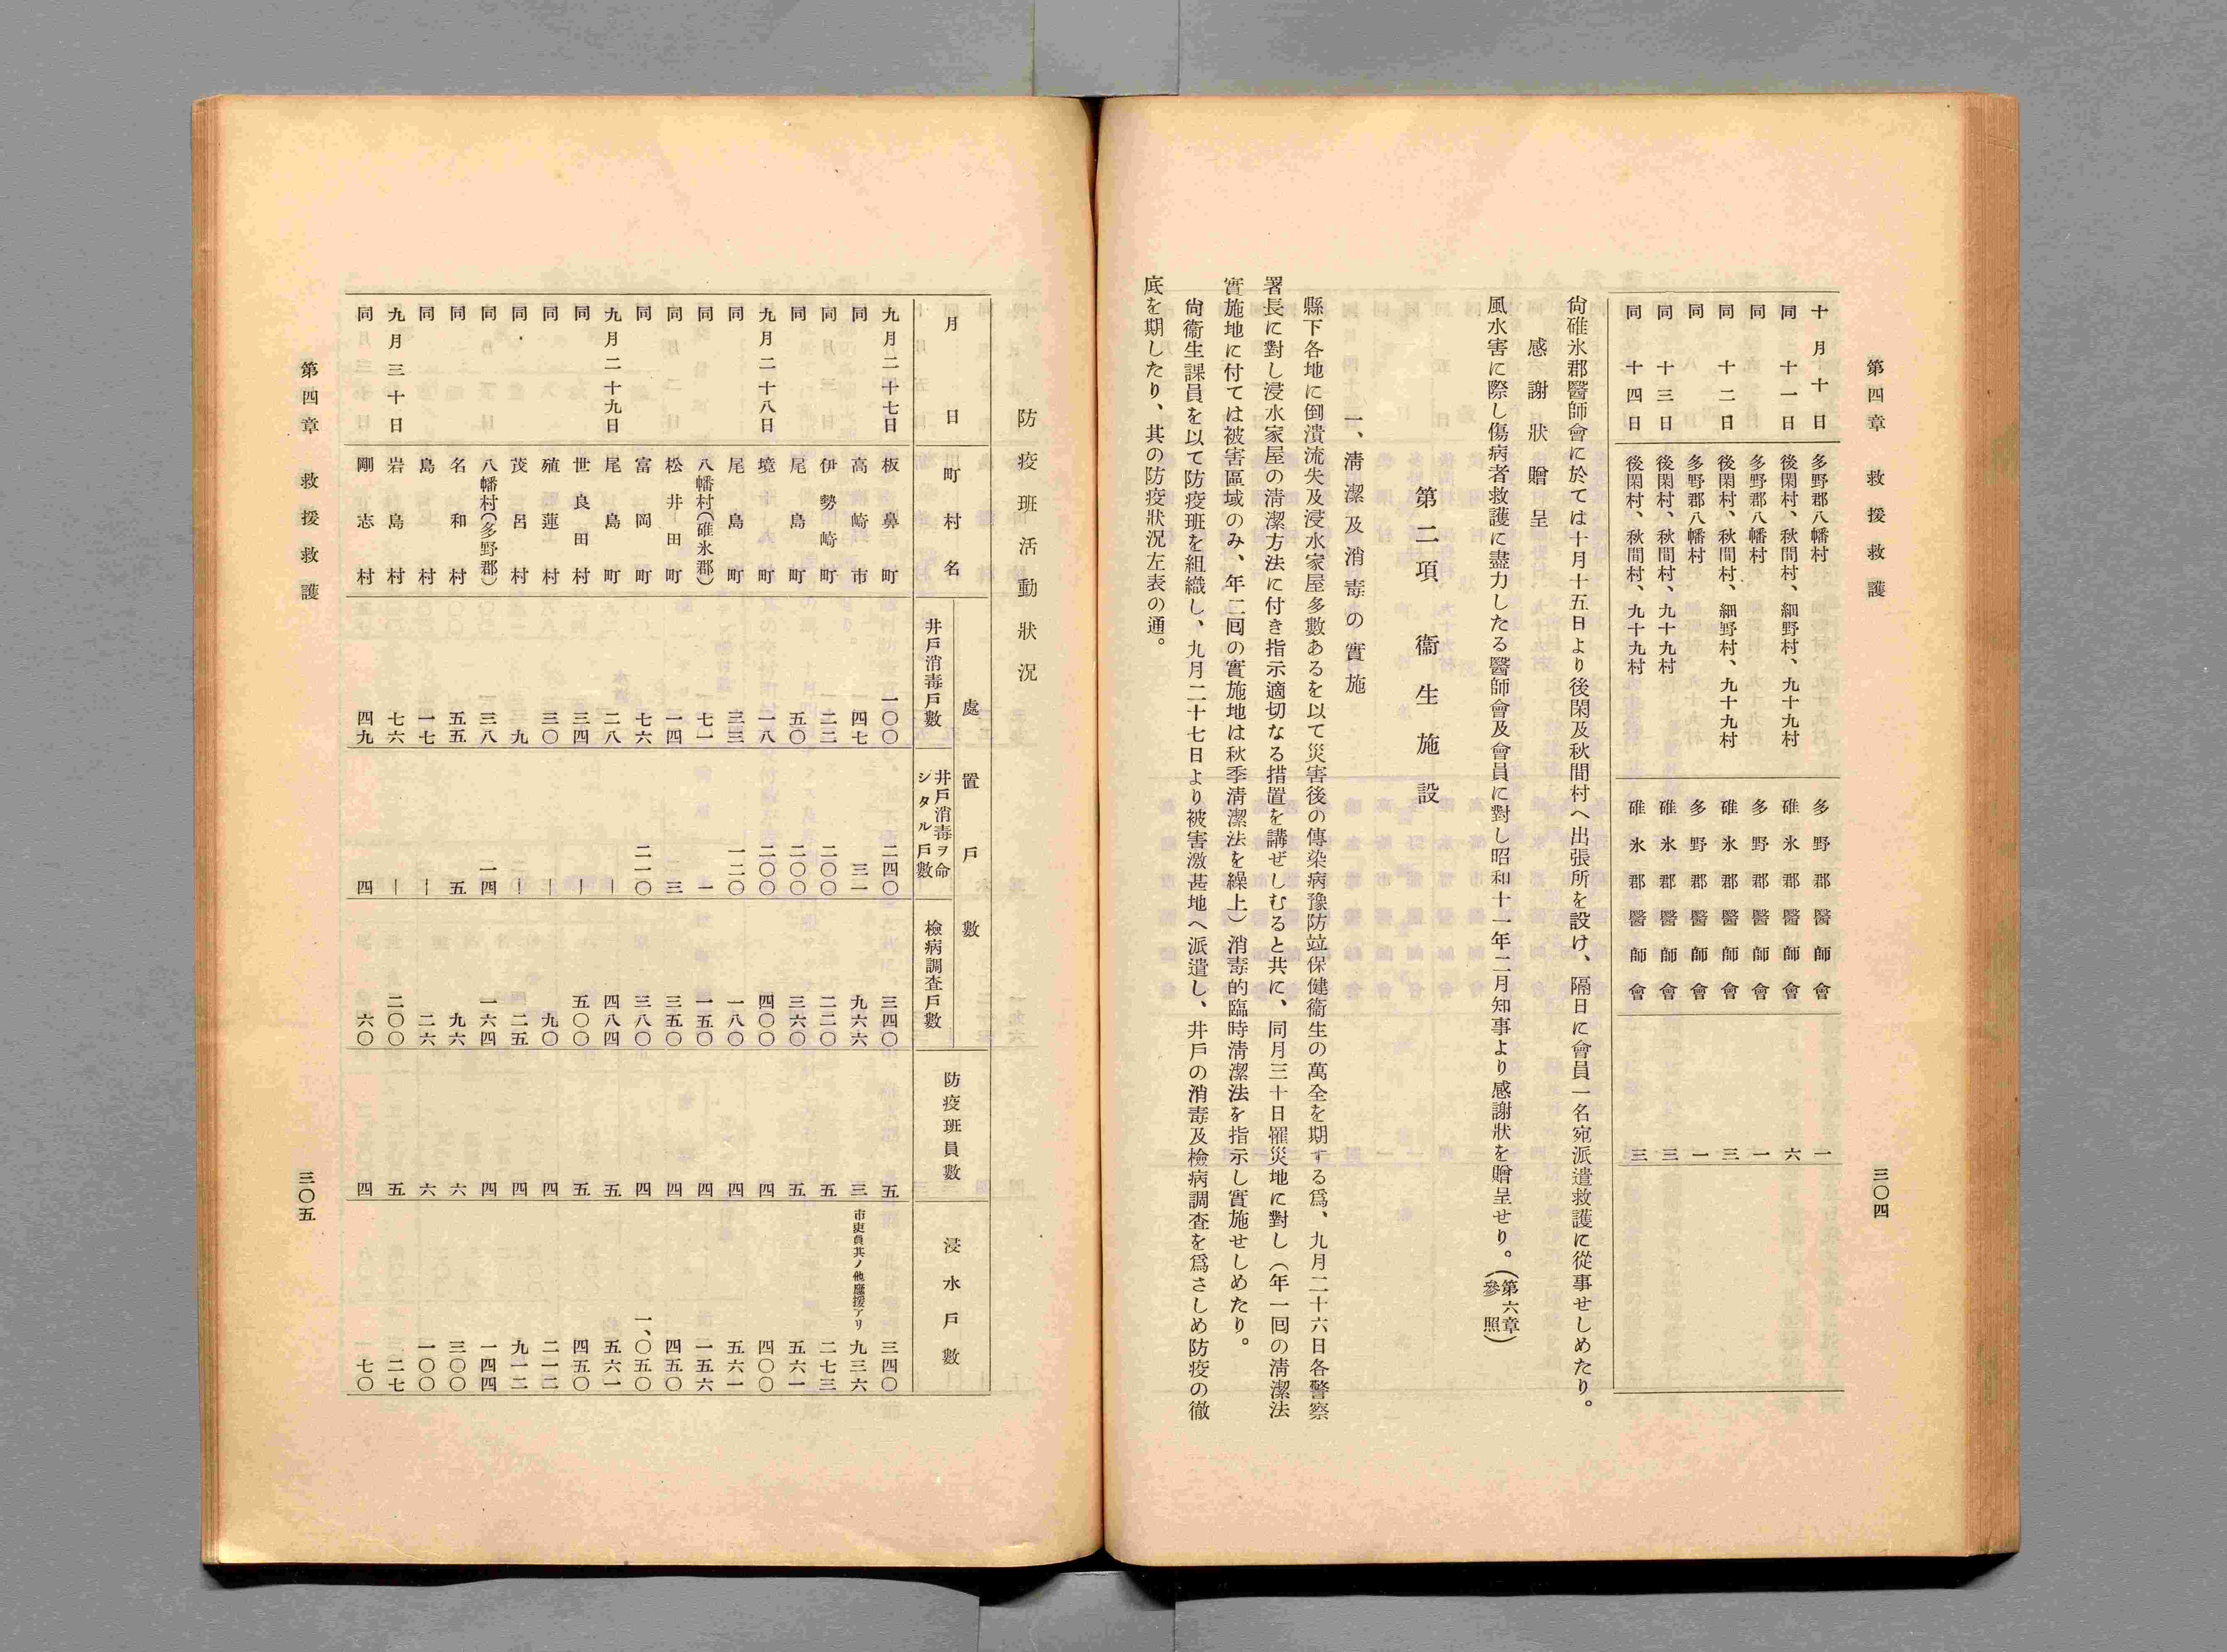 第四章　救援救護
三〇四
十月十日　多野郡八幡村　多野郡醫師會　一
同　十一日　後閑村、秋間村、細野村、九十九村　碓氷郡醫師會　六
同　多野郡八幡村　多野郡醫師會　一
同　十二日　後閑村、秋間村、細野村、九十九村　碓氷郡醫師會　三
同　多野郡八幡村　多野郡醫師會　一
同　十三日　後閑村、秋間村、九十九村　碓氷郡醫師會　三
同　十四日　後閑村、秋間村、九十九村　碓氷郡醫師會　三
尙碓氷郡醫師會に於ては十月十五日より後閑及秋間村へ出張所を設け、隔日に會員一名宛派遣救護に從事せしめたり。
感謝狀贈呈
風水害に際し傷病者救護に盡力したる醫師會及會員に對し昭和十一年二月知事より感謝狀を贈呈せり。（第六章參照）
第二項　衞生施設
一、淸潔及消毒の實施
縣下各地に倒潰流失及浸水家屋多數あるを以て災害後の傳染病豫防竝保健衞生の萬全を期する爲、九月二十六日各警察
署長に對し浸水家屋の淸潔方法に付き指示適切なる措置を講ぜしむると共に、同月三十日罹災地に對し（年一囘の淸潔法
實施地に付ては被害區域のみ、年二囘の實施地は秋季淸潔法を繰上）消毒的臨時淸潔法を指示し實施せしめたり。
尙衞生課員を以て防疫班を組織し、九月二十七日より被害激甚地へ派遣し、井戶の消毒及檢病調査を爲さしめ防疫の徹
底を期したり、其の防疫狀況左表の通。
防疫班活動狀況
月日　町村名　處置戶數　井戶消毒戶數　井戶消毒ヲ命シタル戶數　檢病調査戶數　防疫班員數　浸水戶數
九月二十七日　板鼻町　一〇〇　二四〇　三四〇　五　三四〇
同　高崎市　四七　三一　九六六　三　市吏員其ノ他應援アリ　九三六
同　伊勢崎町　二二　二〇〇　二二〇　五　二七三
同　尾島町　五〇　二〇〇　三六〇　五　五六一
九月二十八日　境町　一八　二〇〇　四〇〇　四　四〇〇
同　尾島町　三三　一二〇　一八〇　四　五六一
同　八幡村（碓氷郡）　七一　一　一五〇　四　一五六
同　松井田町　一四　三　三五〇　四　四五〇
同　富岡町　七六　二一〇　三八〇　四　一、〇五〇
九月二十九日　尾島町　二八　―　四八四　五　五六一
同　世良田村　三四　―　五〇〇　五　四五〇
同　殖蓮村　三〇　―　九〇　四　二一二
同　茂呂村　九　―　二二五　四　九一二
同　八幡村（多野郡）　三八　一四　一六四　四　一四四
同　名和村　五五　五　九六　六　三〇〇
同　島村　一七　―　二六　六　一〇〇
九月三十日　岩島村　七六　―　二〇〇　五　二七
同　剛志村　四九　四　六〇　四　一七〇
第四章　救援救護
三〇五